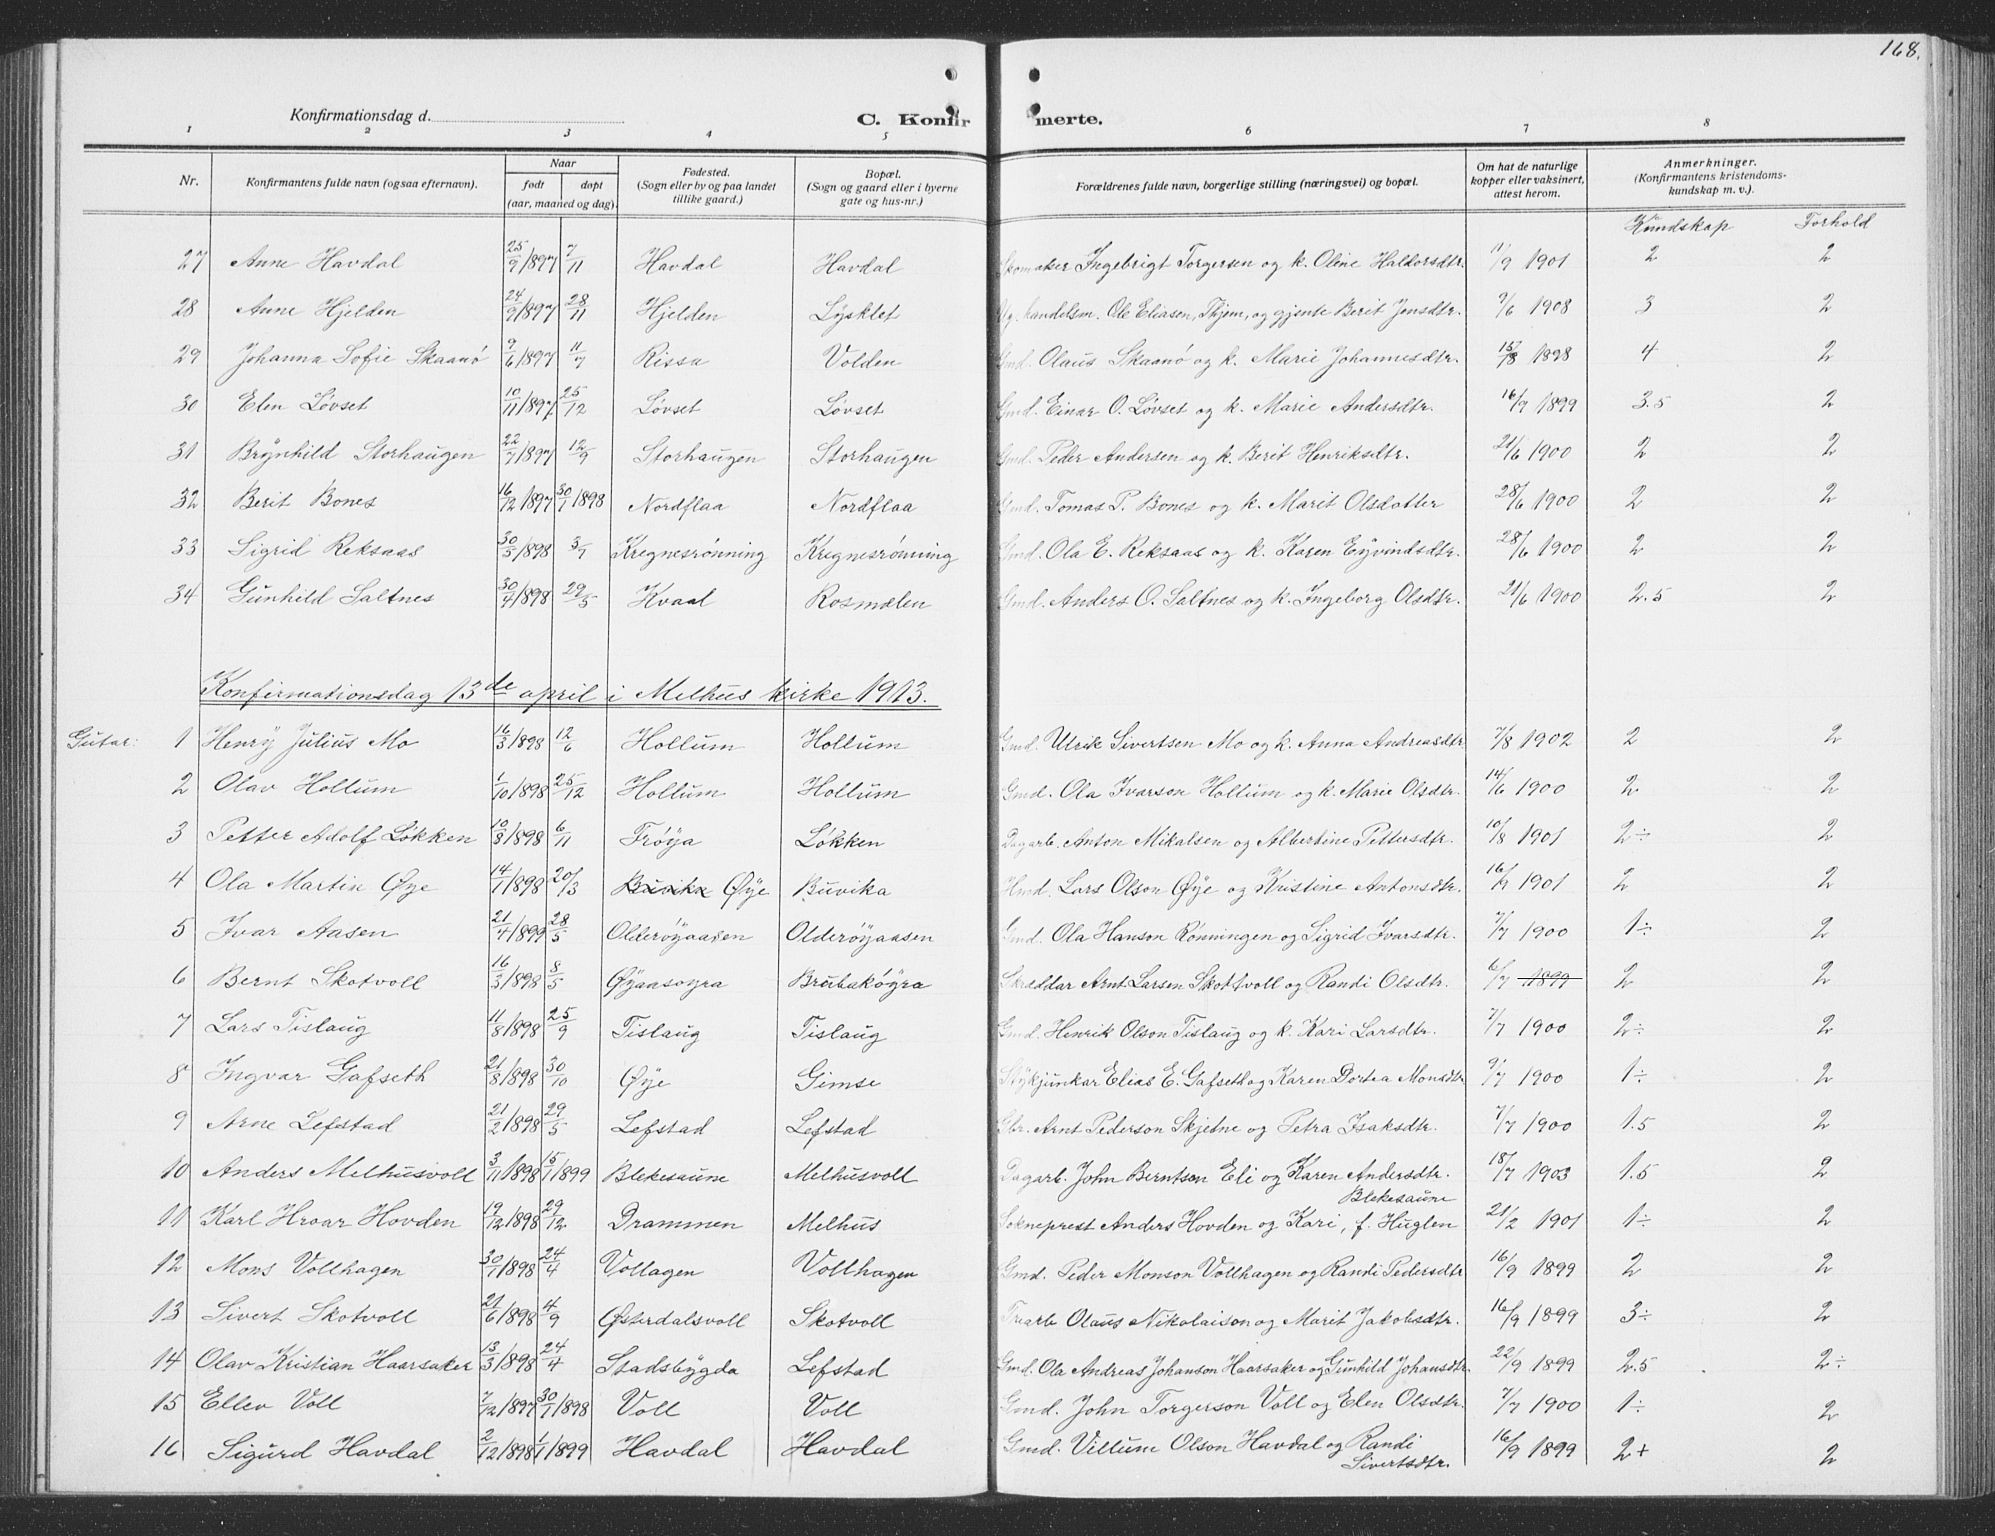 168.
Konfirmationsdag d.
C. Konfirmerte.
1 2 3 4 5 6 7 8
Nr. Konfirmantens fulde navn (ogsaa efternavn). Naar født døpt (aar, maaned og dag). Fødested. (Sogn eller by og paa landet tillike gaard.) Bopæl. (Sogn og gaard eller i byerne gate og hus-nr.) Forældrenes fulde navn, borgerlige stilling (næringsvei) og bopæl. Om hat de naturlige kopper eller vaksinert, attest herom. Anmerkninger. (Konfirmantens kristendomskundskap m. v.).
Kundskap Forhold
27 Anne Havdal 25/9 1897 7/11 Havdal Havdal Skomaker Ingebrigt Torgersen og k. Oline Haldorsdtr. 11/9 1901 2 2
28 Anne Hjelden 24/9 1897 28/11 Hjelden Lysklet Ug. handelsm. Ole Eliasen, Thjem, og gjente Berit Jensdtr. 9/6 1908 3 2
29 Johanna Sofie Skaanö 9/6 1897 11/7 Rissa Volden Gmd. Olaus Skaanö og k. Marie Johannesdtr. 15/8 1898 4 2
30 Elen Lövset 10/11 1897 25/12 Lövset Lövset Gmd. Einar O. Lövset og k. Marie Andersdtr. 16/9 1899 3.5 2
31 Brynhild Storhaugen 22/7 1897 12/9 Storhaugen Storhaugen Gmd. Peder Andersen og k. Berit Henriksdtr. 21/6 1900 2 2
32 Berit Bones 16/12 1897 30/1 1898 Nordflaa Nordflaa Gmd. Tomas P. Bones og k. Marit Olsdatter 28/6 1900 2 2
33 Sigrid Reksaas 30/5 1898 3/7 Kregnesrönning Kregnesrönning Gmd. Ola E. Reksaas og k. Karen Eyvindsdtr. 28/6 1900 2 2
34 Gunhild Saltnes 30/4 1898 29/5 Kvaal Rosmælen Gmd. Anders O. Saltnes og k. Ingeborg Olsdtr. 21/6 1900 2.5 2
Konfirmationsdag 13de april i Melhus kirke 1913.
Gutar: 1 Henry Julius Mo 16/3 1898 12/6 Hollum Hollum Gmd. Ulrik Sivertsen Mo og k. Anna Andreasdtr 7/8 1902 2 2
2 Olav Hollum 1/10 1898 25/12 Hollum Hollum Gmd. Ola Ivarson Hollum og k. Marie Olsdtr. 14/6 1900 2 2
3 Petter Adolf Løkken 10/8 1898 6/11 Frøya Løkken Dagarb. Anton Mikalsen og Albertine Pettersdtr. 10/8 1901 2÷ 2
4 Ola Martin Øye 14/1 1898 20/3 Buvika Øye Buvika Hmd. Lars Olson Øye og Kristine Antonsdtr. 16/9 1901 2 2
5 Ivar Aasen 21/4 1899 28/5 Olderöyaasen Olderöyaasen Gmd. Ola Hanson Rönningen og Sigrid Ivarsdtr. 7/7 1900 1÷ 2
6 Bernt Skotvoll 16/3 1898 8/5 Øyaasøyra Brubakøyra Skræddar Arnt Larsen Skottvoll og Randi Olsdtr. 6/7 1899 2 2
7 Lars Tislaug 11/8 1898 25/9 Tislaug Tislaug Gmd. Henrik Olson Tislaug og k. Kari Larsdtr. 7/7 1900 2÷ 2
8 Ingvar Gafseth 21/8 1898 30/10 Øye Gimse Stykjunkar Elias E. Gafseth og Karen Dortea Monsdtr 9/7 1900 1÷ 2
9 Arne Lefstad 21/2 1898 29/5 Lefstad Lefstad Gbr. Arnt Pederson Skjetne og Petra Isaksdtr. 7/7 1900 1.5 2
10 Anders Melhusvoll 3/11 1898 15/1 1899 Blekesaune Melhusvoll Dagarb. John Berntsen Eli og Karen Andersdtr. Blekesaune 18/7 1903 1.5 2
11 Karl Hroar Hovden 19/12 1898 29/12 Drammen Melhus Sokneprest Anders Hovden og Kari, f. Huglen 21/2 1901 1÷ 2
12 Mons Vollhagen 30/1 1898 24/4 Vollagen Vollhagen Gmd. Peder Monson Vollhagen og Randi Pedersdtr 16/9 1899 2 2
13 Sivert Skotvoll 21/6 1898 4/9 Østerdalsvoll Skotvoll Trearb Olaus Nikolaison og Marit Jakobsdtr. 16/9 1899 3÷ 2
14 Olav Kristian Haarsaker 13/3 1898 24/4 Stadsbygda Lefstad Gmd. Ola Andreas Johanson Haarsaker og Gunhild Johansdtr 22/9 1899 2.5 2÷
15 Ellev Voll 7/12 1897 30/1 1898 Voll Voll Gmd. John Torgerson Voll og Elen Olsdtr. 7/7 1900 1÷ 2
16 Sigurd Havdal 2/12 1898 1/1 1899 Havdal Havdal Gmd. Villum Olson Havdal og Randi Sivertsdtr. 16/9 1899 2+ 2